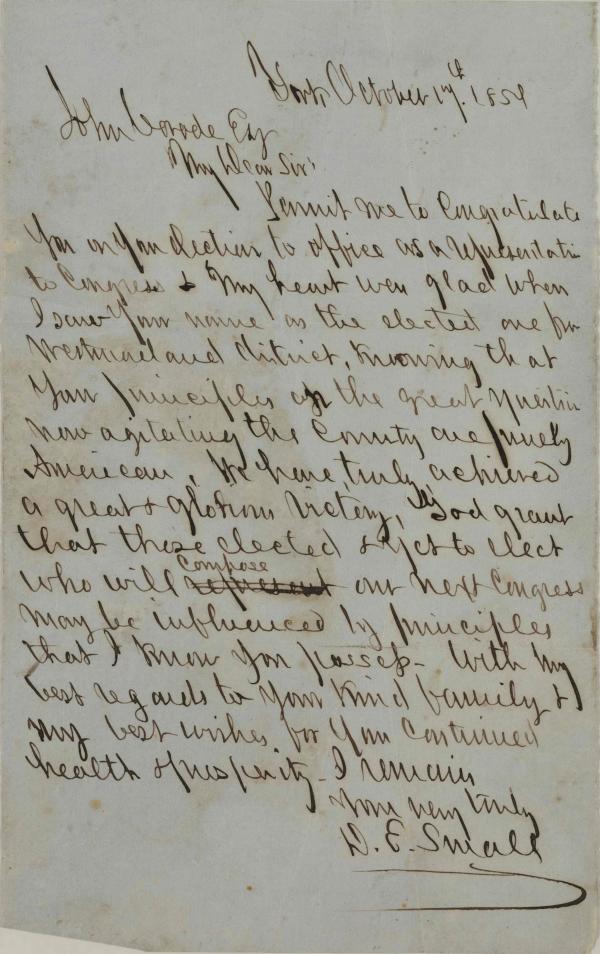 York October 17th. 1854
John Covode Esq
My Dear Sir
Permit me to Congratulate
You on Your election to office as a representative
to Congress & My heart was glad when
I saw Your name as the elected one for
Westmoreland district, Knowing that
Your principles on the great question
now agitating the Country are purely
American, We have truly achieved
a great & glorious Victory, God grant
that those elected & yet to elect
who will compose represent our next Congress
may be influenced by principles
that I know You possess - With My
best regards to Your Kind family &
my best wishes for Your Continued
health & prosperity - I remain
Your very truly
D. E. Small